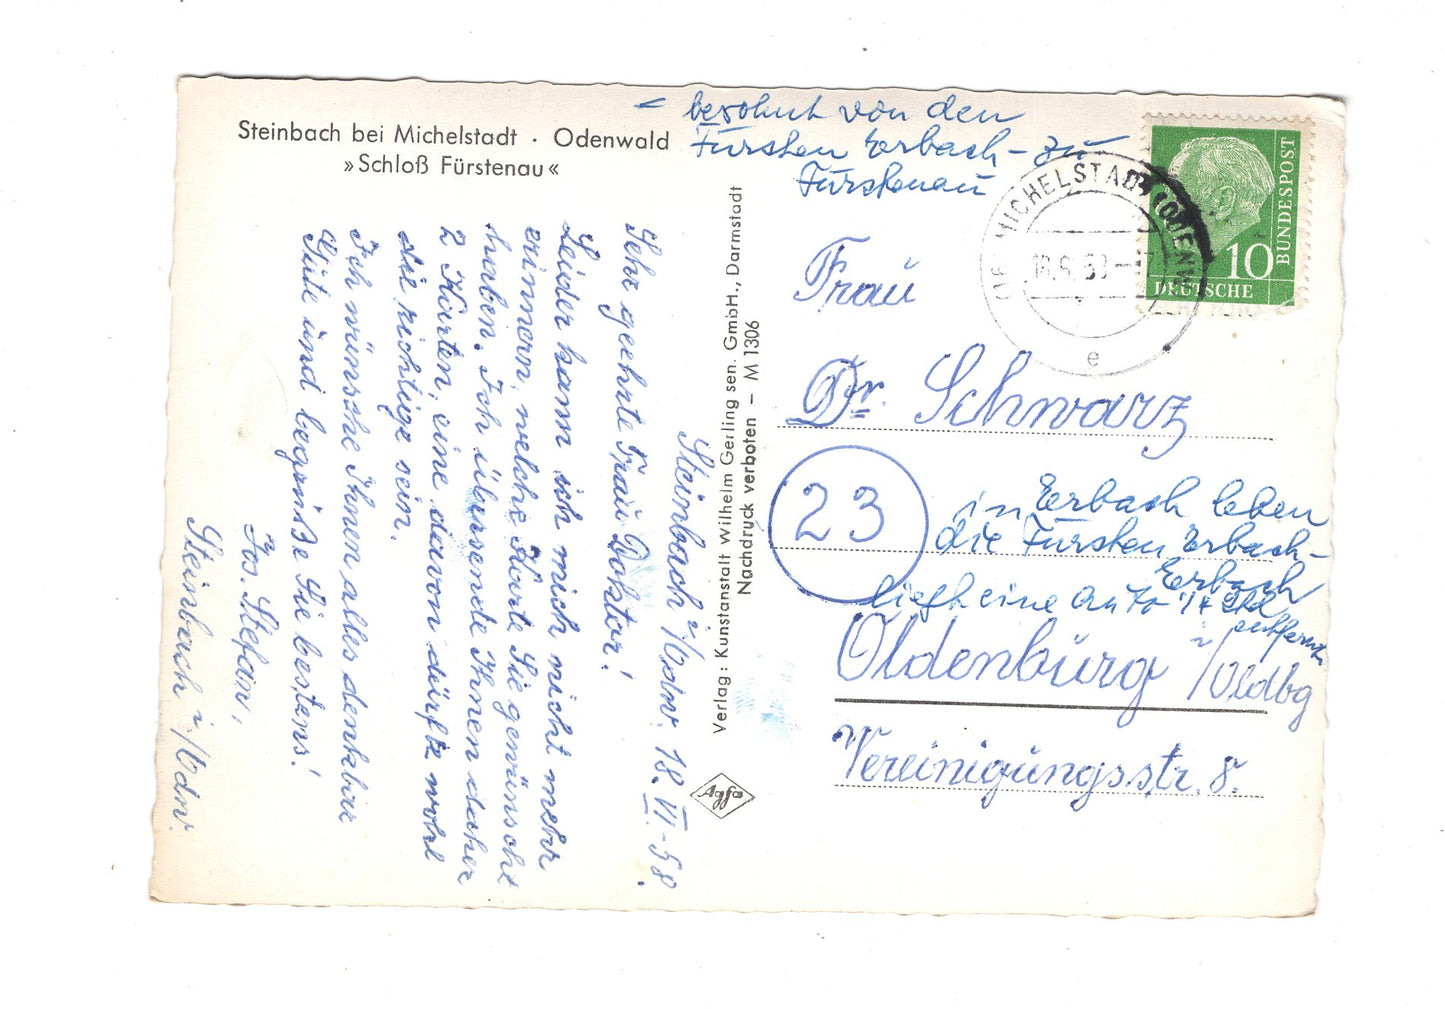 Steinbach bei Michelstadt · Odenwald
»Schloß Fürstenau«
– bewohnt von den
Fürsten Erbach – zu
Fürstenau
Steinbach i/Odw. 18. VI. 58.
Sehr geehrte Frau Doktor!
Leider kann ich mich nicht mehr
erinnern, welche Karte Sie gewünscht
haben. Ich übersende Ihnen daher
2 Karten, eine davon dürfte wohl
die richtige sein.
Ich wünsche Ihnen alles denkbar
Gute und begrüße Sie bestens!
Jos. Stefan,
Steinbach i/Odw.
Verlag: Kunstanstalt Wilhelm Gerling sen. GmbH., Darmstadt
Nachdruck verboten – M 1306
Agfa
MICHELSTADT (ODENW)
18.6.58-17
e
10
DEUTSCHE
BUNDESPOST
Frau
Dr. Schwarz
23
in Erbach leben
die Fürsten Erbach-
Erbach
liegt eine Auto 1/4 Std
entfernt
Oldenburg i/Oldbg
Vereinigungsstr. 8.